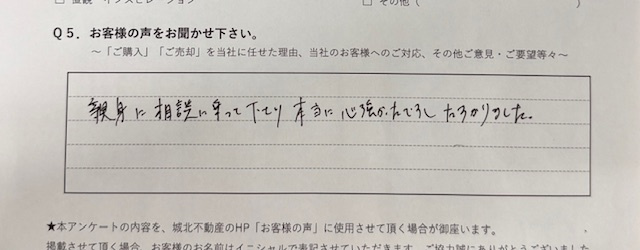 □ 直観・インスピレーション □ その他（ ）
Q5．お客様の声をお聞かせ下さい。
～「ご購入」「ご売却」を当社に任せた理由、当社のお客様へのご対応、その他ご意見・ご要望等々～
親身に相談に乗って下さり本当に心強かったですし たすかりました。
★本アンケートの内容を、城北不動産のHP「お客様の声」に使用させて頂く場合が御座います。
掲載させて頂く場合、お客様のお名前はイニシャルで表記させていただきます。ご協力誠にありがとうございました